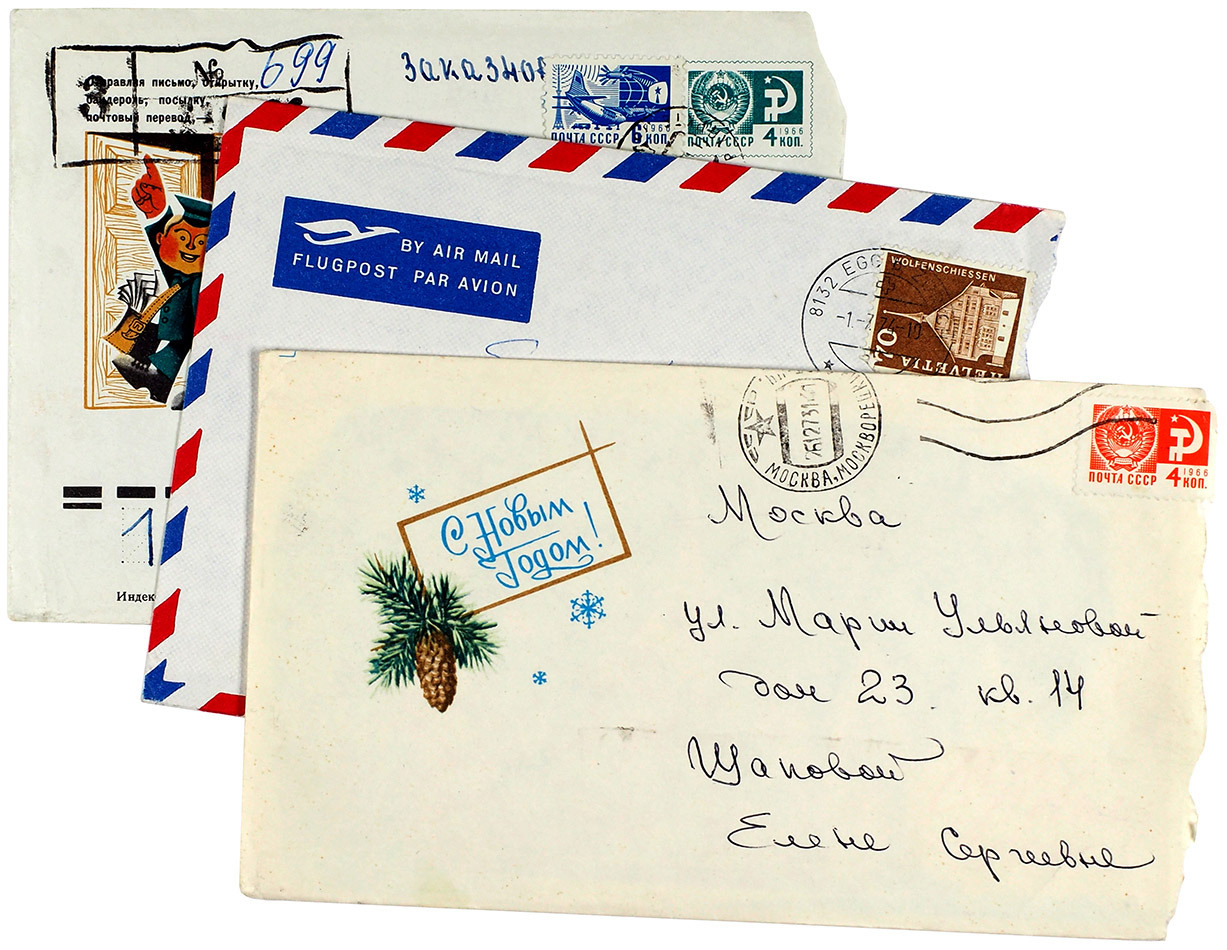 № 699
Отправляя письмо, открытку,
бандероль, посылку,
почтовый перевод,—
З
Заказное
ПОЧТА СССР 6 КОП.
1966
ПОЧТА СССР 4 КОП.
1966
Индекс
BY AIR MAIL
FLUGPOST PAR AVION
8132 EGG
-1.-7.74-10
WOLFENSCHIESSEN
70
HELVETIA
МОСКВА,
261273
ПОЧТА СССР 4 КОП.
1966
С Новым
Годом!
Москва
ул. Марии Ульяновой
дом 23. кв. 14
Щаповой
Елене Сергеевне